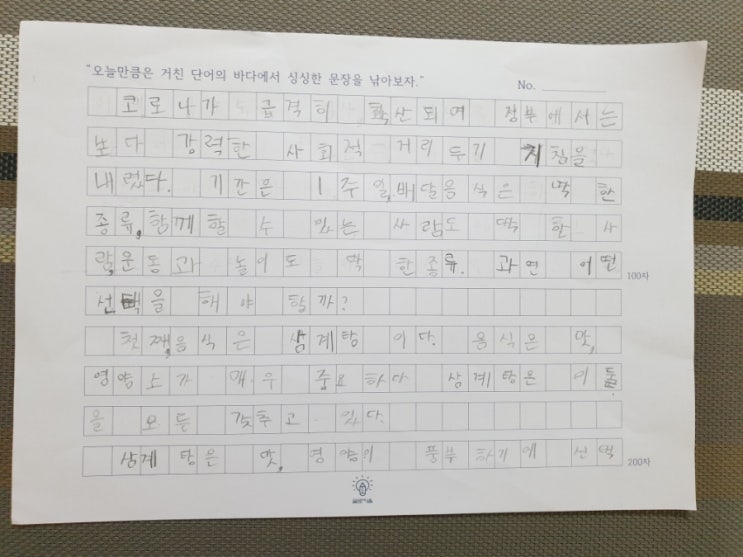 "오늘만큼은 거친 단어의 바다에서 싱싱한 문장을 낚아보자."
No.
코로나가 급격히 확산되여 정부에서는
보다 강력한 사회적 거리 두기 지침을
내렸다. 기간은 1주일, 배달음식은 딱 한
종류, 함께 할 수 있는 사람도 딱 한 사
람, 운동과 놀이도 딱 한종류. 과연 어떤
100자
선택을 해야 할까?
첫째, 음식은 삼계탕 이다. 음식은 맛,
영양소가 매우 중요하다 삼계탕은 이 둘
을 모두 갖추고 있다.
삼계탕은 맛, 영양이 풍부 하기에 선택
200자